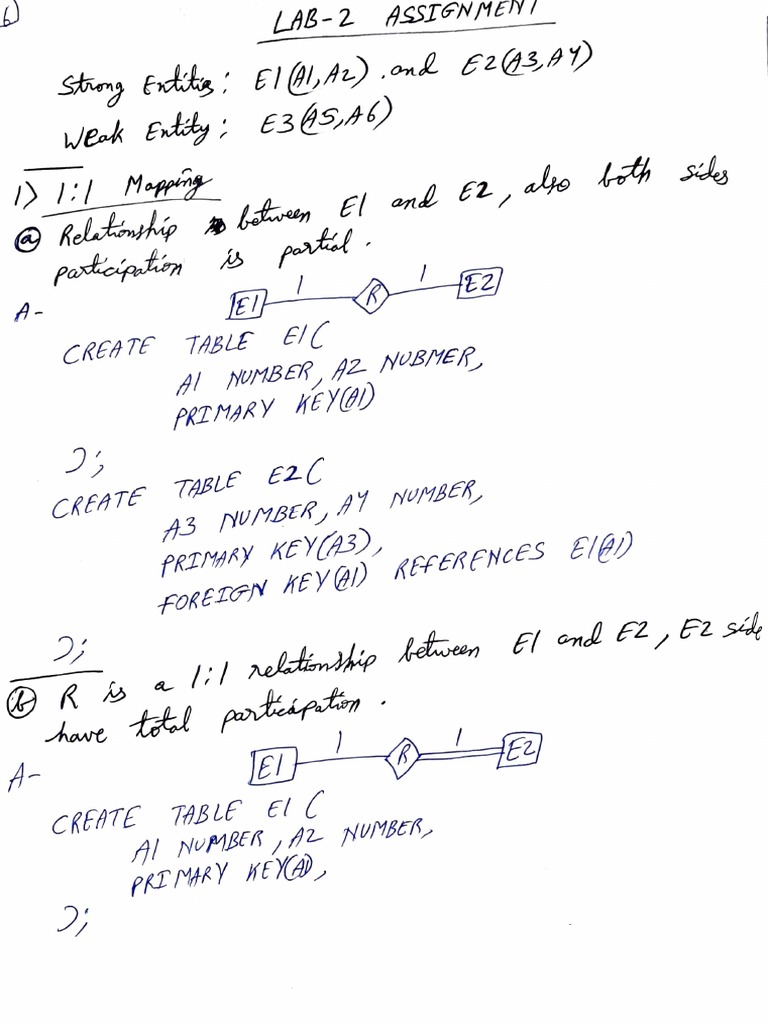 6)
LAB-2 ASSIGNMENT
Strong Entities: E1(A1, A2) and E2(A3, A4)
Weak Entity: E3(A5, A6)
1) 1:1 Mapping
(a) Relationship between E1 and E2, also both sides
participation is partial.
A-
E1 1 R 1 E2
CREATE TABLE E1(
A1 NUMBER, A2 NUBMER,
PRIMARY KEY(A1)
);
CREATE TABLE E2(
A3 NUMBER, A4 NUMBER,
PRIMARY KEY(A3),
FOREIGN KEY(A1) REFERENCES E1(A1)
);
(b) R is a 1:1 relationship between E1 and E2, E2 side
have total participation.
A-
E1 1 R 1 E2
CREATE TABLE E1(
A1 NUMBER, A2 NUMBER,
PRIMARY KEY(A1),
);